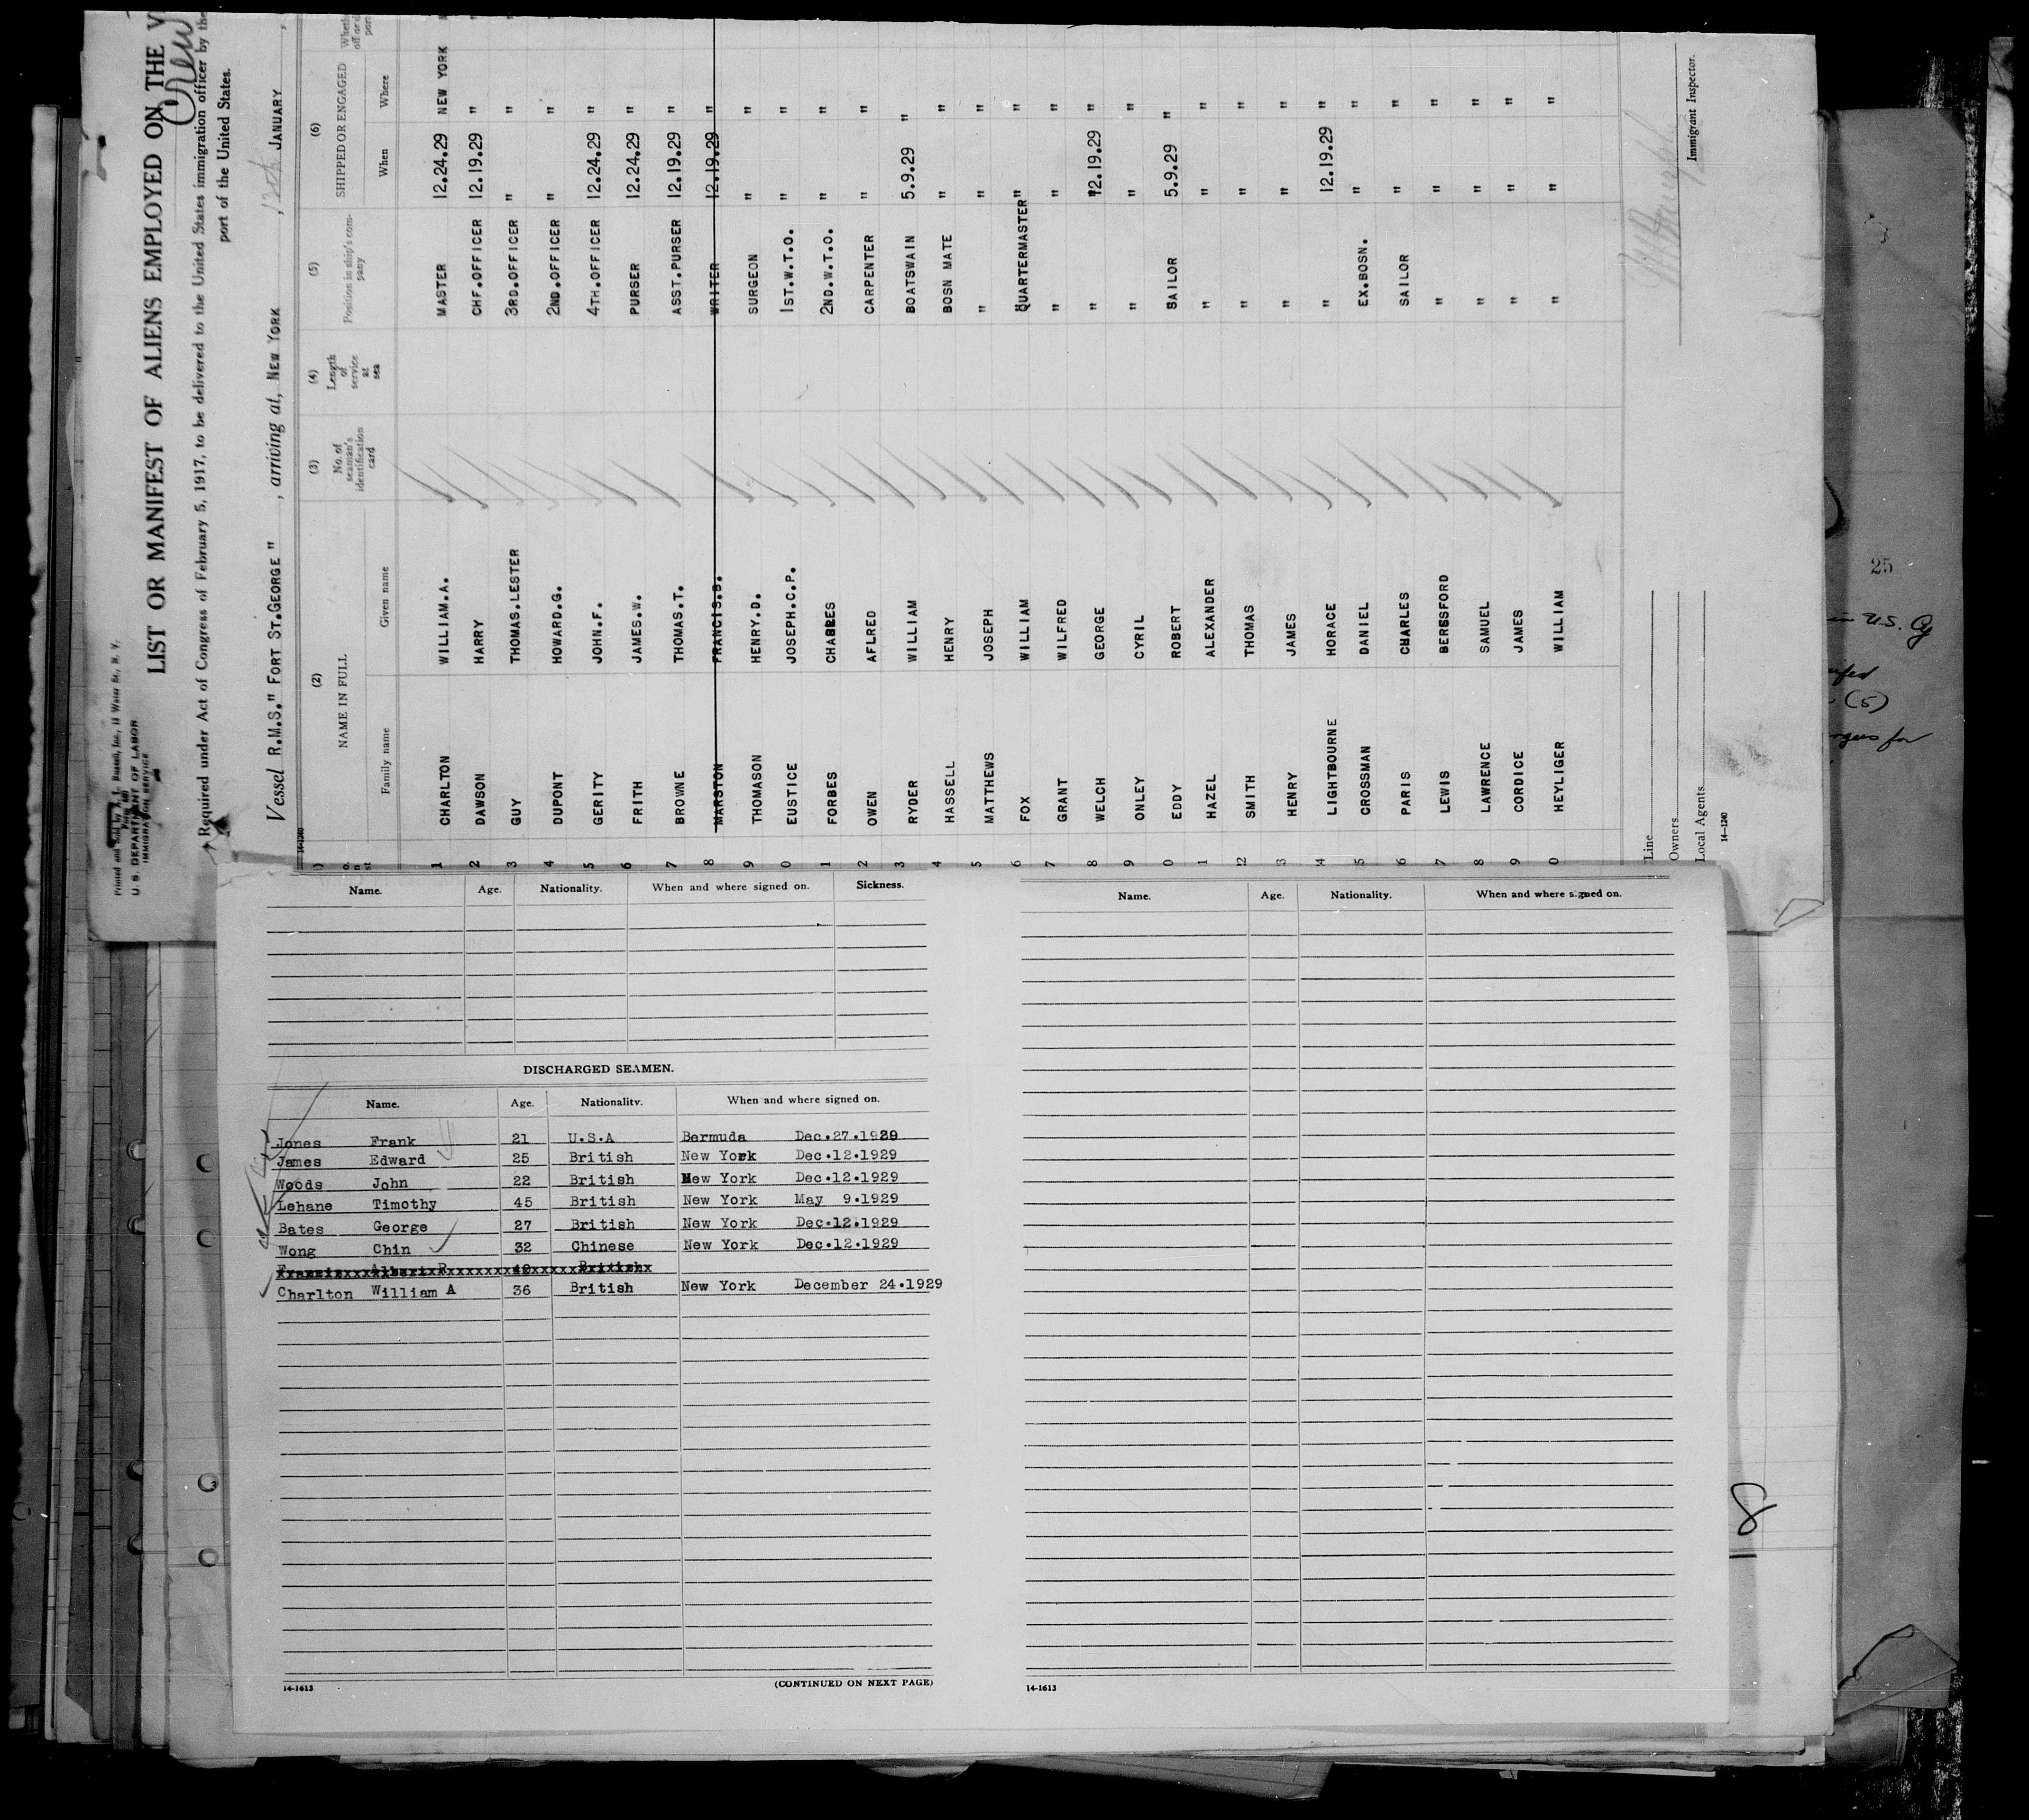 Printed and Sold by A. L. Russell, Inc., 11 Water St., N. Y.
U. S. DEPARTMENT OF LABOR
IMMIGRATION SERVICE
Crew
LIST OR MANIFEST OF ALIENS EMPLOYED ON THE V
Required under Act of Congress of February 5, 1917, to be delivered to the United States immigration officer by the
port of the United States.
Vessel R.M.S." FORT ST.GEORGE " , arriving at, NEW YORK , 13th JANUARY ,
14-1240
(2) (3) (4) (5) (6)
NAME IN FULL No. of seaman's identification card Length of service at sea Position in ship's company SHIPPED OR ENGAGED
Family name Given name When Where
1 CHARLTON WILLIAM.A. MASTER 12.24.29 NEW YORK
2 DAWSON HARRY CHF.OFFICER 12.19.29 "
3 GUY THOMAS.LESTER 3RD.OFFICER " "
4 DUPONT HOWARD.G. 2ND.OFFICER " "
5 GERITY JOHN.F. 4TH.OFFICER 12.24.29 "
6 FRITH JAMES.W. PURSER 12.24.29 "
7 BROWNE THOMAS.T. ASST.PURSER 12.19.29 "
8 MARSTON FRANCIS.S. WRITER 12.19.29 "
9 THOMASON HENRY.D. SURGEON " "
0 EUSTICE JOSEPH.C.P. 1ST.W.T.O. " "
1 FORBES CHARLES 2ND.W.T.O. " "
2 OWEN AFLRED CARPENTER " "
3 RYDER WILLIAM BOATSWAIN 5.9.29 "
4 HASSELL HENRY BOSN MATE " "
5 MATTHEWS JOSEPH " " "
6 FOX WILLIAM QUARTERMASTER " "
7 GRANT WILFRED " " "
8 WELCH GEORGE " 12.19.29 "
9 ONLEY CYRIL " " "
0 EDDY ROBERT SAILOR 5.9.29 "
1 HAZEL ALEXANDER " " "
22 SMITH THOMAS " " "
3 HENRY JAMES " " "
24 LIGHTBOURNE HORACE " 12.19.29 "
25 CROSSMAN DANIEL EX.BOSN. " "
26 PARIS CHARLES SAILOR " "
7 LEWIS BERESFORD " " "
8 LAWRENCE SAMUEL " " "
9 CORDICE JAMES " " "
0 HEYLIGER WILLIAM " " "
Line
Owners
Local Agents
Immigrant Inspector.
14-1240
25
in U.S. Cy
(5)
for
Name. Age. Nationality. When and where signed on. Sickness.
DISCHARGED SEAMEN.
Name. Age. Nationality. When and where signed on.
Jones Frank 21 U.S.A Bermuda Dec.27.1929
James Edward 25 British New York Dec.12.1929
Woods John 22 British New York Dec.12.1929
Lehane Timothy 45 British New York May 9.1929
Bates George 27 British New York Dec.12.1929
Wong Chin 32 Chinese New York Dec.12.1929
Francis Albert R 40 British
Charlton William A 36 British New York December 24.1929
14-1613 (CONTINUED ON NEXT PAGE)
Name. Age. Nationality. When and where signed on.
14-1613
8